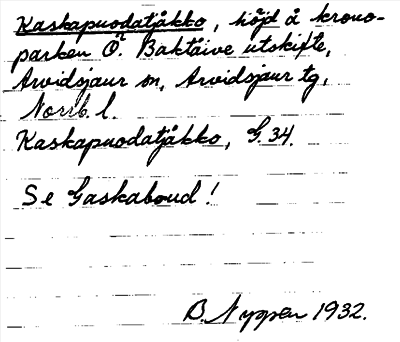 Kaskapuodatjåkko, höjd å krono-
parken Ö. Baktåive utskifte,
Arvidsjaur sn, Arvidsjaur tg,
Norrb. l.
Kaskapuodatjåkko, G. 34.
Se Gaskaboud!
B. Nyppen 1932.